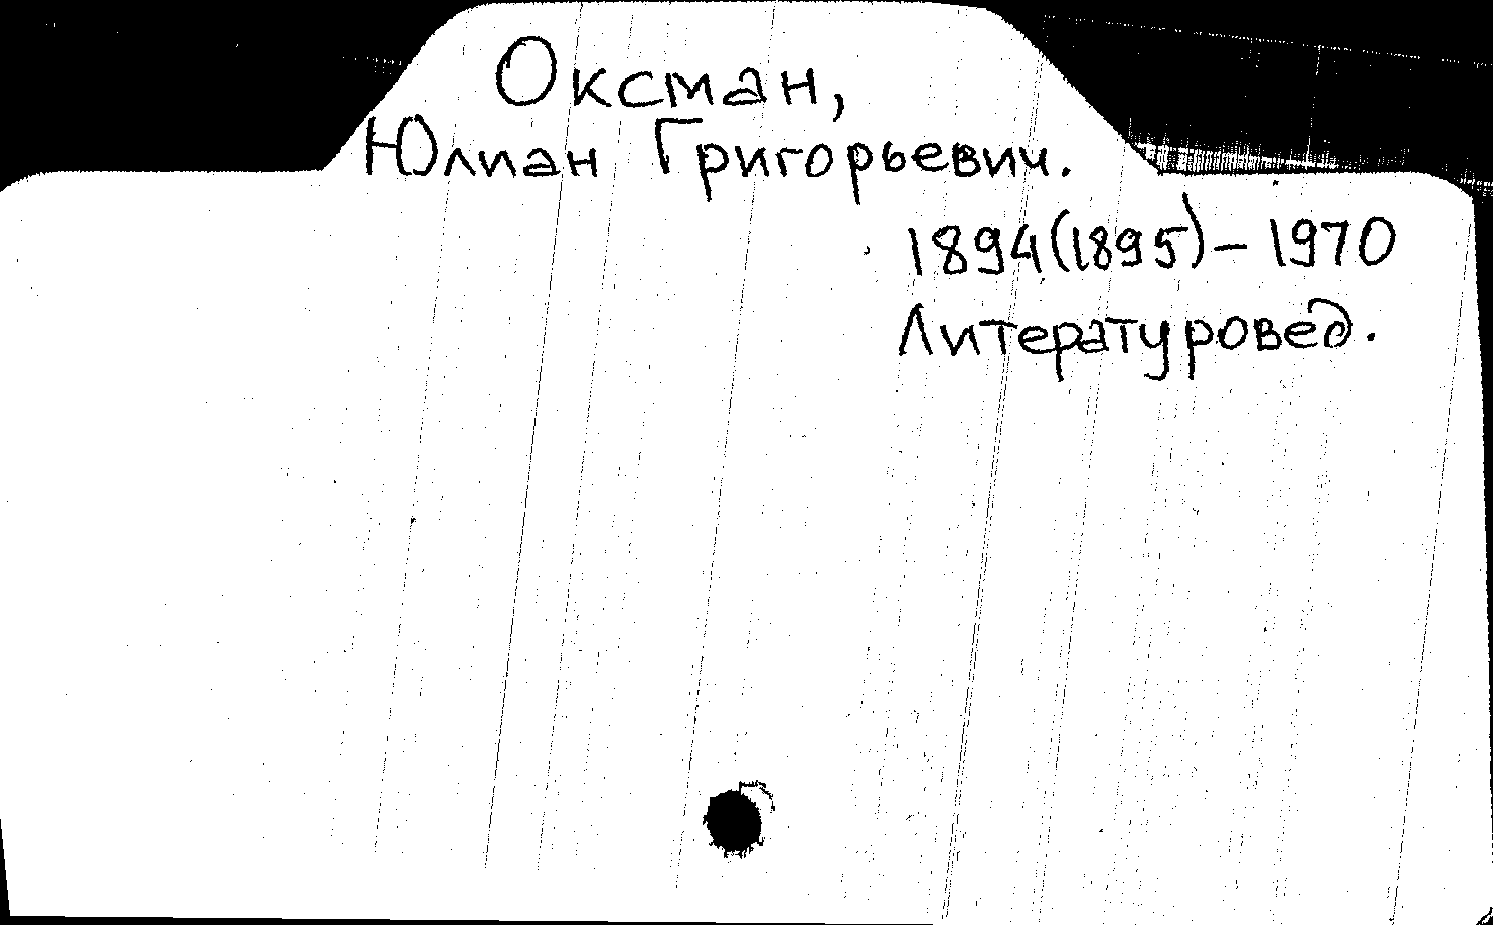 Оксман,
Юлиан Григорьевич.
1894(1895)– 1970
Литературовед.